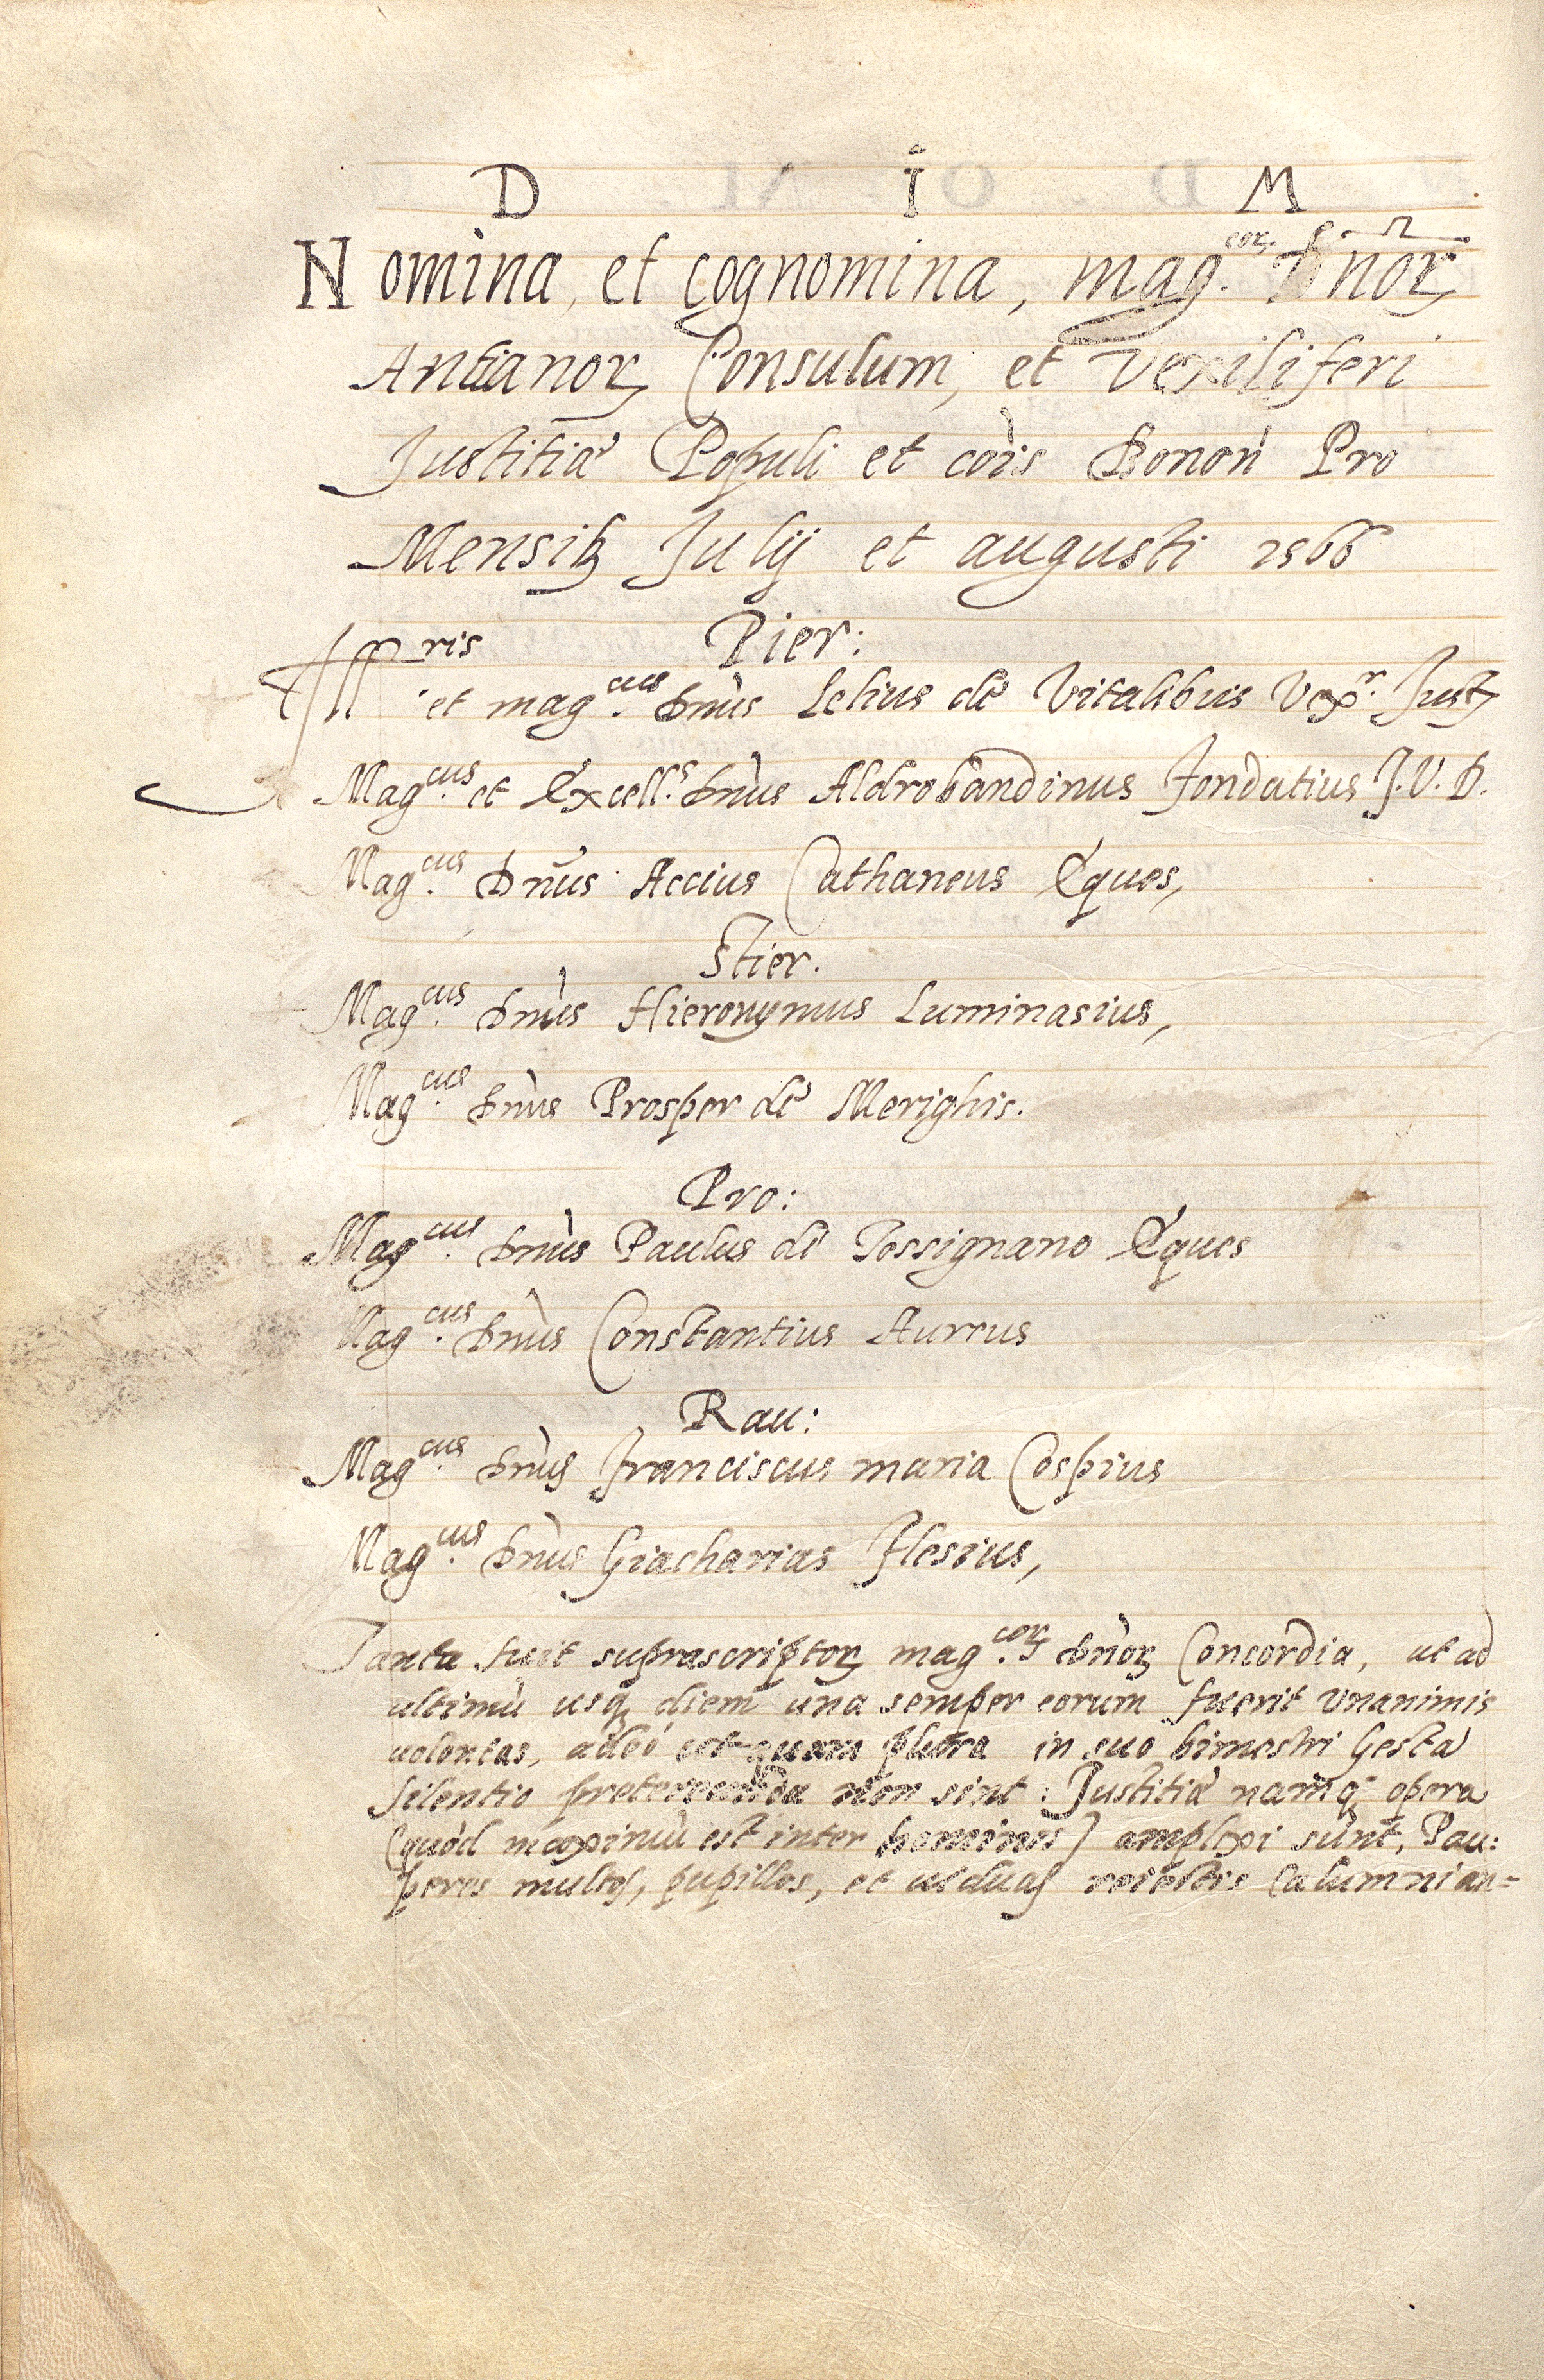 D I M
Nomina, et cognomina, mag.coꝝ Dnoꝝ
Antianoꝝ Consulum, et Vexiliferi
Justitiæ Populi et cois Bonon Pro
Mensib Julij et augusti 1566
Pier:
Illris
et mag.cus Dnus Lelius de Vitalibus Vexr. Just
Mag.cus et Excell.s Dnus Aldrobandinus Fondatius J. V. D.
Mag.cus Dnus Accius Cathaneus Eques,
Stier.
Mag.cus Dnus Hieronymus Luminasius,
Mag.cus Dnus Prosper de Merighis.
Pro:
Mag.cus Dnus Paulus de Tossignano Eques
Mag.cus Dnus Constantius Aureus
Rau:
Mag.cus Dnus Franciscus maria Cospius
Mag.cus Dnus Giacharias Flesius,
Tanta fuit suprascriptoꝝ mag.coꝝ Dnoꝝ Concordia, ut ad
ultimu usq diem una semper eorum fuerit Vnanimis
uolontas, adeò ut quam plura in suo bimestri Gesta
silentio pretereunda non sint: Justitiæ namq opera
(quòd maximu est inter homines) amplexi sunt, Pau:
peres multos, pupillos, et uiduas reiectis Calumnian=